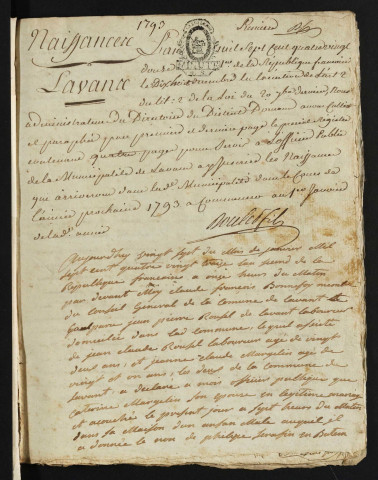 1793
Premier
Naissance
Lavance
L'an mil sept cent quatre vingt
douze 1er de la République francaise
le Dix huit decembre la
du tit. 2 de la Loi du 20 7bre dernier Nous
administrateur du Directoire du District avons Cotté
et paraphé par premiere et derniere page le present Registre
contenant quatre pages pour Servir a L'officier Public
de la Municipalité de Lavan a y Inscrire les Naissance
que arriveront dans la de Municipalité dans le Cours de
L'année prochaine 1793 a Commencer au 1er Janvier
de lad. année
aujourdhuy vingt Sept du Mois de janvier Mil
Sept cent quatre vingt treize lan second de la
République francaise a onze heurs du Matin
par devant Moy claude francois Bonnefoy membre
du Conseil General de la Comune de Lavant le
jean pierre Roussel de lavant laboureur
domicilié dans lad commune, le quel assisté
de jean claude Roussel laboureur agé de vingt
deux ans, et jeanne claude Margelin agé de
vingt et un ans, les deux de la commune de
Lavant, a declaré a moy officier publique que
caterine Margelin Son epouse en legitime mariage
est acouchée le present jour a Sept heurs du Matin
dans Sa Maison d'un enfan Male auquel il
a donnée le nom de philipe Serafin